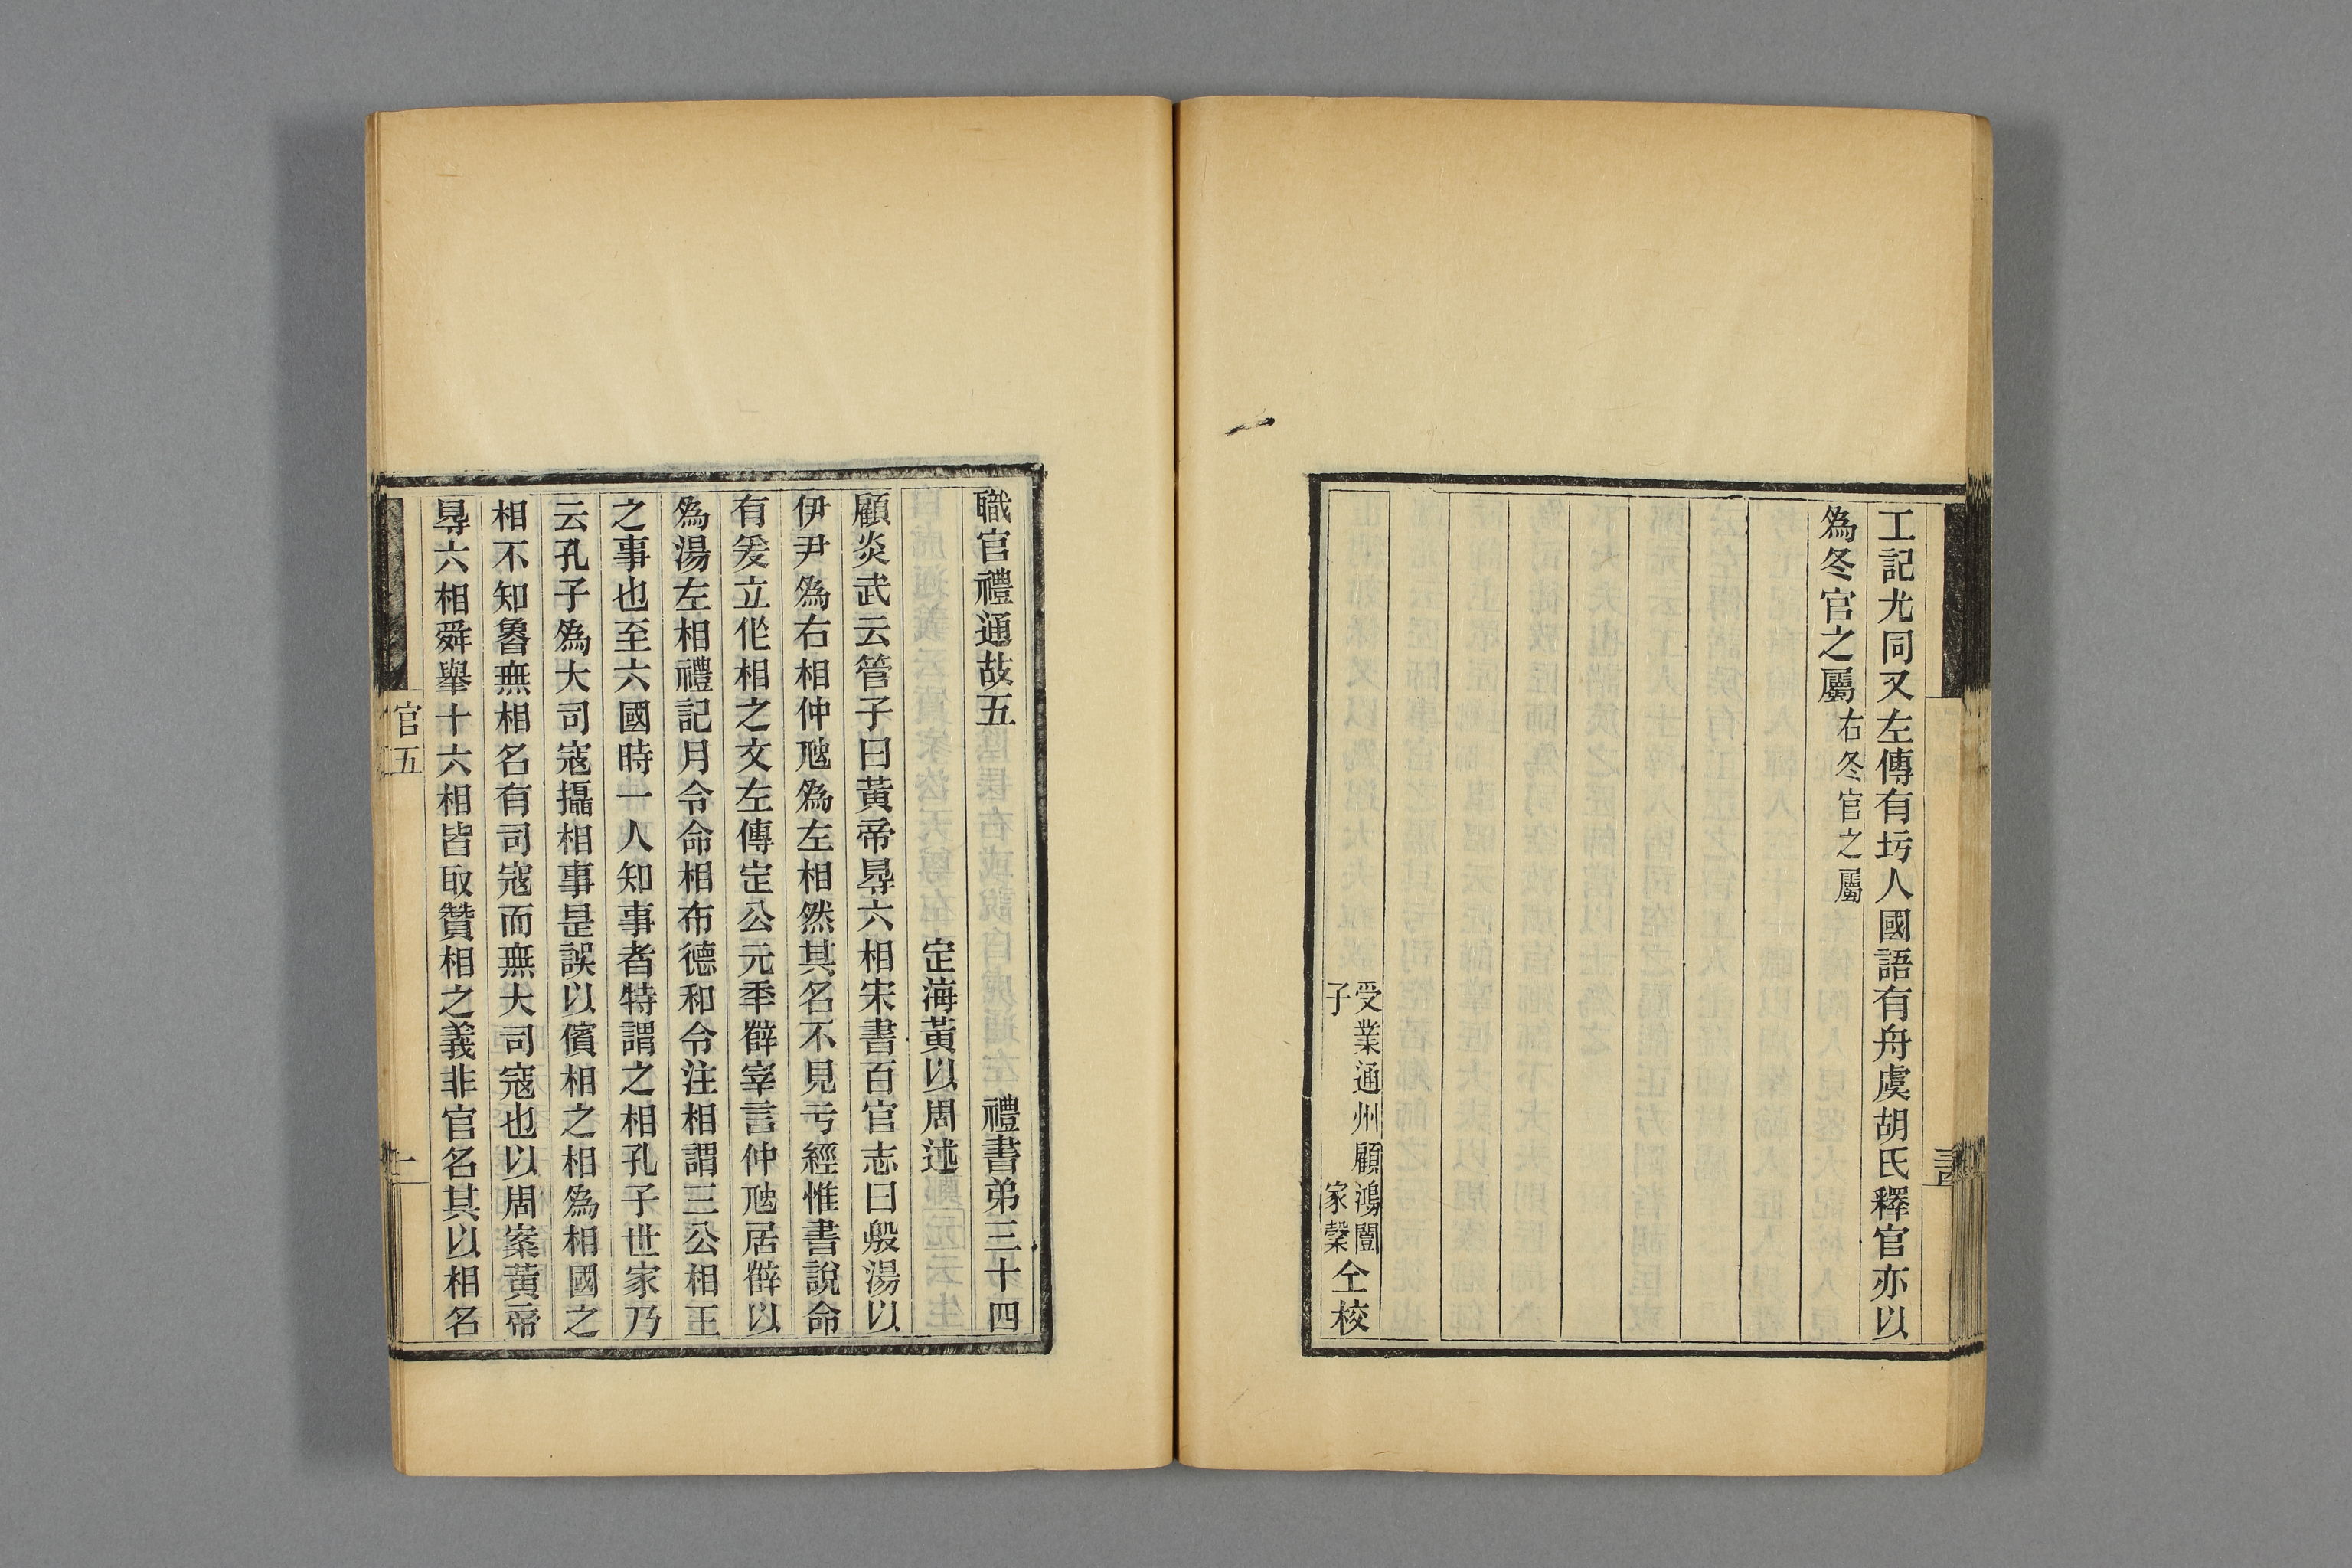 工記尤同又左傳有圬人國語有舟虞胡氏釋官亦以
爲冬官之屬右冬官之屬
受業通州顧鴻闓
子家鼜
仝校
職官禮通故五
禮書弟三十四
定海黃以周述
顧炎武云管子曰黃帝㝵六相宋書百官志曰殷湯以
伊尹爲右相仲虺爲左相然其名不見于經惟書說命
有爰立作相之文左傳定公元年薛宰言仲虺居薛以
爲湯左相禮記月令命相布德和令注相謂三公相王
之事也至六國時一人知事者特謂之相孔子世家乃
云孔子爲大司寇攝相事是誤以儐相之相爲相國之
相不知魯無相名有司寇而無大司寇也以周案黃帝
㝵六相舜舉十六相皆取贊相之義非官名其以相名
官五
一